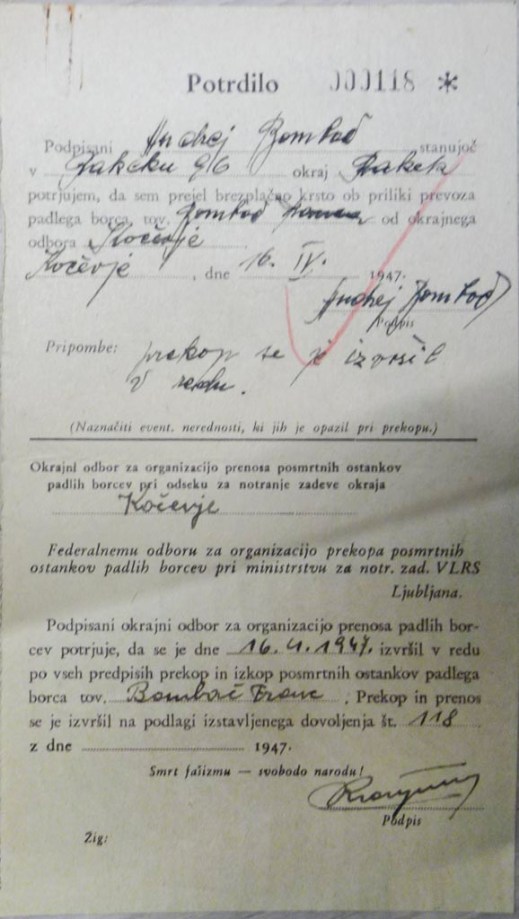 Potrdilo 000118 *
Podpisani Andrej Bombač stanujoč
v Rakeku 96 okraj Rakek
potrjujem, da sem prejel brezplačno krsto ob priliki prevoza
padlega borca, tov. Bombač Franca od okrajnega
odbora Kočevje
Kočevje, dne 16. IV. 1947.
Andrej Bombač
Podpis
Pripombe: prekop se je izvršil
v redu.
(Naznačiti event. nerednosti, ki jih je opazil pri prekopu.)
Okrajni odbor za organizacijo prenosa posmrtnih ostankov
padlih borcev pri odseku za notranje zadeve okraja
Kočevje
Federalnemu odboru za organizacijo prekopa posmrtnih
ostankov padlih borcev pri ministrstvu za notr. zad. VLRS
Ljubljana.
Podpisani okrajni odbor za organizacijo prenosa padlih bor-
cev potrjuje, da se je dne 16.4.1947. izvršil v redu
po vseh predpisih prekop in izkop posmrtnih ostankov padlega
borca tov. Bombač Franc. Prekop in prenos
se je izvršil na podlagi izstavljenega dovoljenja št. 118
z dne 1947.
Smrt fašizmu — svobodo narodu!
Podpis
Žig: